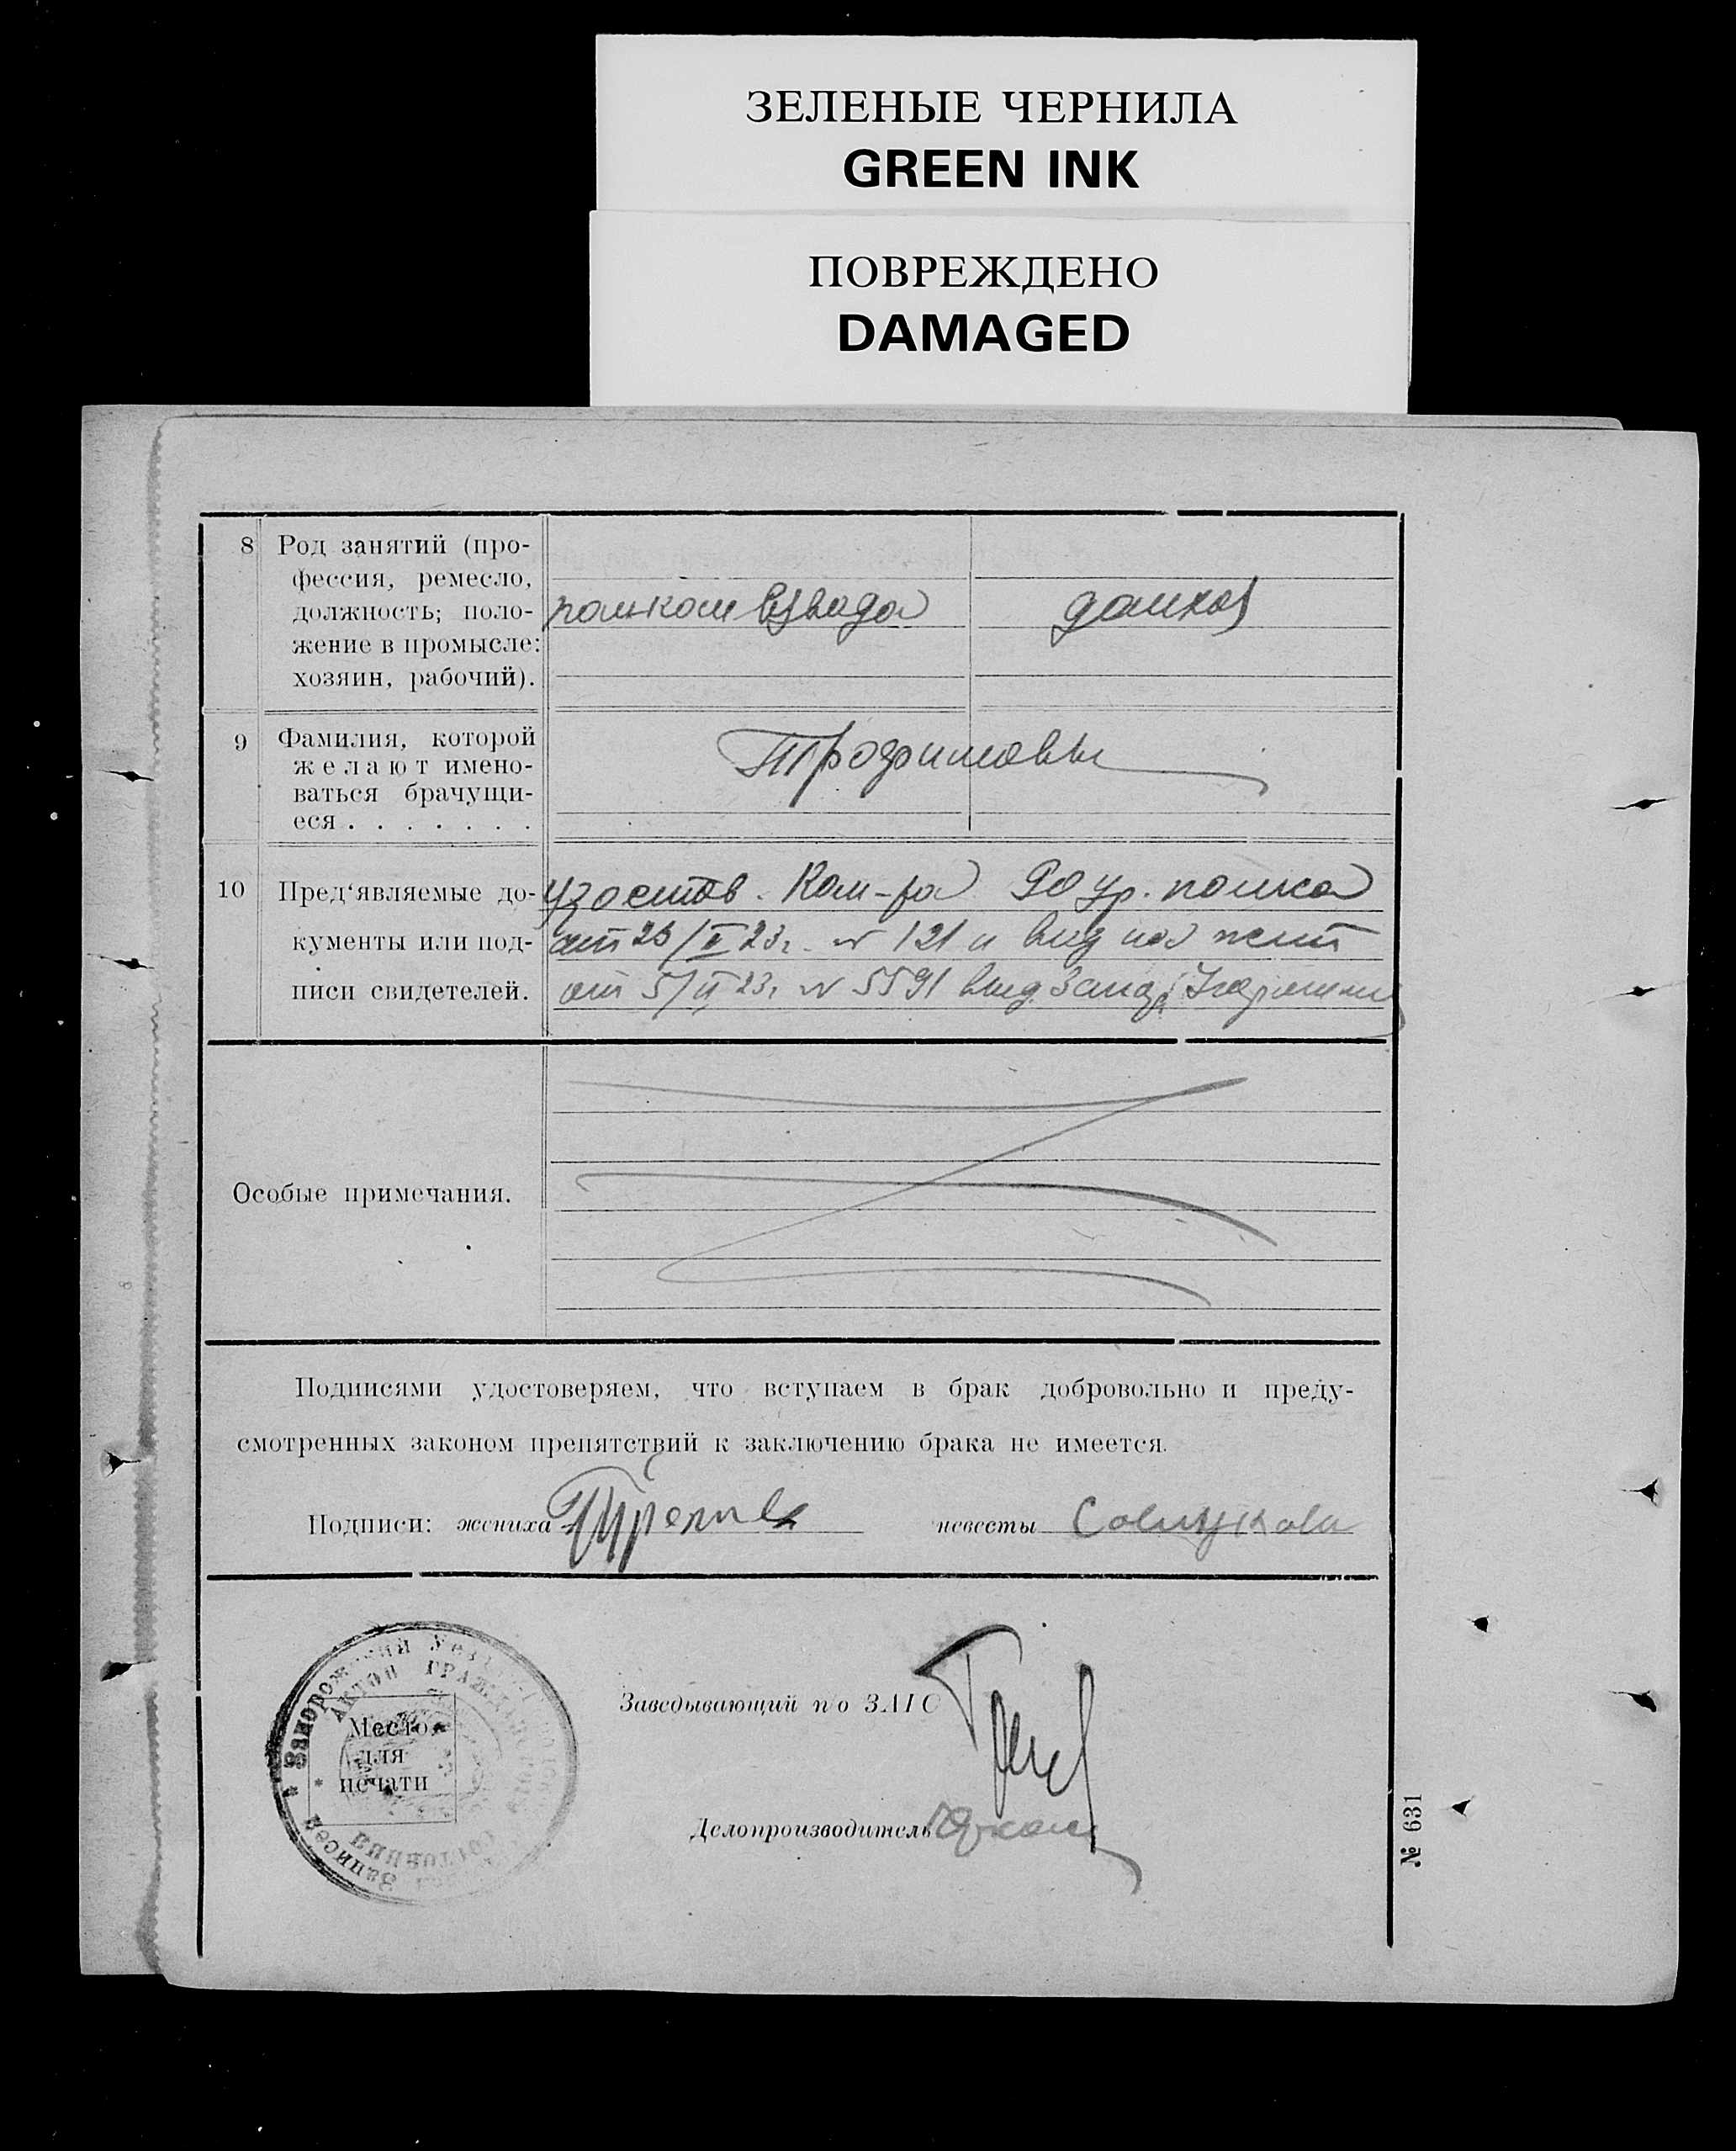 ЗЕЛЕНЫЕ ЧЕРНИЛА
GREEN INK
ПОВРЕЖДЕНО
DAMAGED
8 Род занятий (про-
фессия, ремесло,
должность; поло-
жение в промысле:
хозяин, рабочий).
помком взвода
домхоз
9 Фамилия, которой
желают имено-
ваться брачущи-
еся . . . . . . .
Трофимовы
10 Пред‘являемые до-
кументы или под-
писи свидетелей.
удостов. Ком-ра полка
от 23г. № 121 и вид на жит
от 5/II 23г. № 5591 выд.
Особые примечания.
Подписями удостоверяем, что вступаем в брак добровольно и преду-
смотренных законом препятствий к заключению брака не имеется.
Подписи: жениха
невесты
Место
для
печати
Запорожский
АКТОВ ГРАЖДАНСКОГО
СОСТОЯНИЯ
Записей
Заведывающий п/о ЗАГС
Делопроизводитель
№ 631